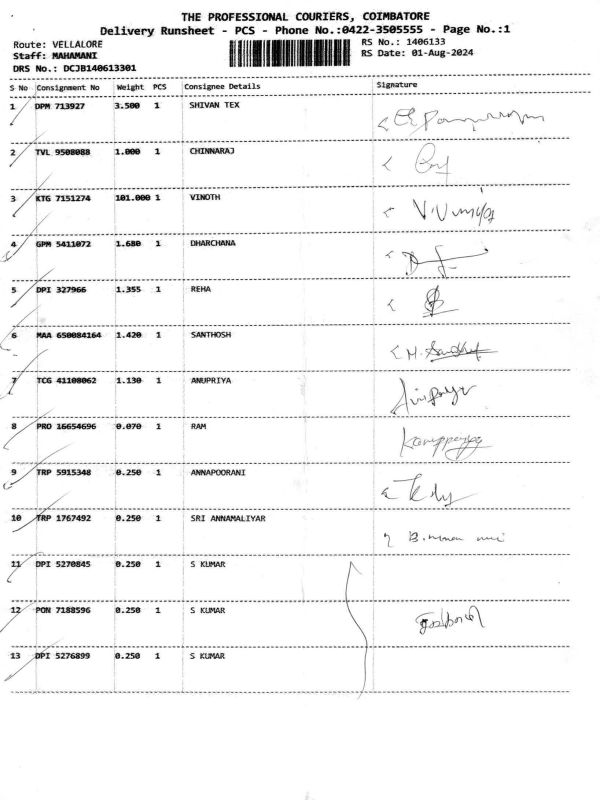 THE PROFESSIONAL COURIERS, COIMBATORE
Delivery Runsheet - PCS - Phone No.:0422-3505555 - Page No.:1
Route: VELLALORE RS No.: 1406133
Staff: MAHAMANI RS Date: 01-Aug-2024
DRS No.: DCJB140613301
S No Consignment No Weight PCS Consignee Details Signature
1 DPM 713927 3.500 1 SHIVAN TEX
2 TVL 9508088 1.000 1 CHINNARAJ
3 KTG 7151274 101.000 1 VINOTH
4 GPM 5411072 1.680 1 DHARCHANA
5 DPI 327966 1.355 1 REHA
6 MAA 650084164 1.420 1 SANTHOSH
7 TCG 41108062 1.130 1 ANUPRIYA
8 PRO 16654696 0.070 1 RAM
9 TRP 5915348 0.250 1 ANNAPOORANI
10 TRP 1767492 0.250 1 SRI ANNAMALIYAR
11 DPI 5270845 0.250 1 S KUMAR
12 PON 7188596 0.250 1 S KUMAR
13 DPI 5276899 0.250 1 S KUMAR